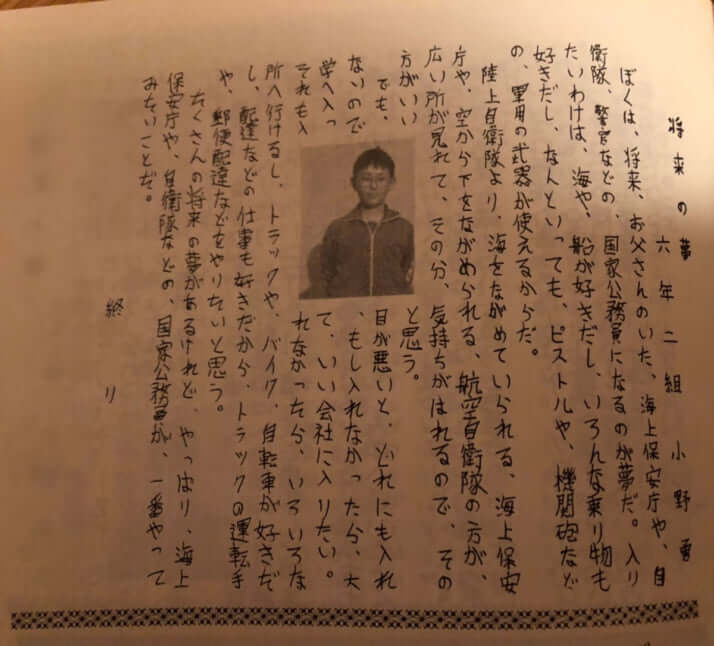 将来の夢
六年二組　小野勇
ぼくは、将来、お父さんのいた、海上保安庁や、自
衛隊、警官などの、国家公務員になるのが夢だ。入り
たいわけは、海や、船が好きだし、いろんな乗り物も
好きだし、なんといっても、ピストルや、機関砲など
の、軍用の武器が使えるからだ。
陸上自衛隊より、海をながめていられる、海上保安
庁や、空から下をながめられる、航空自衛隊の方が、
広い所が見れて、その分、気持ちがはれるので、その
方がいいと思う。
でも、目が悪いと、どれにも入れ
ないので、もし入れなかったら、大
学へ入って、いい会社に入りたい。
それも入れなかったら、いろいろな
所へ行けるし、トラックや、バイク、自転車が好きだ
し、配達などの仕事も好きだから、トラックの運転手
や、郵便配達などをやりたいと思う。
たくさんの将来の夢があるけれど、やっぱり、海上
保安庁や、自衛隊などの、国家公務員が、一番やって
みたいことだ。
終り